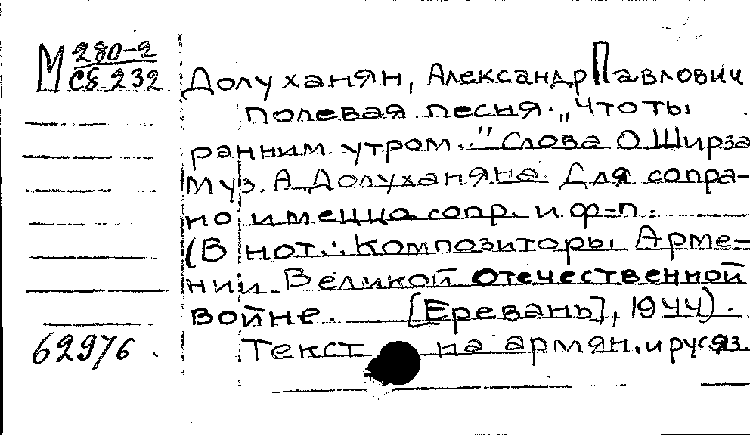 М 280-2
Сб 232
Долуханян, Александр Павлович
Полевая песня. „Что ты
ранним утром.." Слова О.Ширза
Муз. А.Долуханяна. Для сопра-
но и меццо сопр. и ф-п.
(В нот.: Композиторы Арме-
нии – Великой отечественной
войне. [Еревань], 1944).
Текст на армян. и рус яз.
62976.